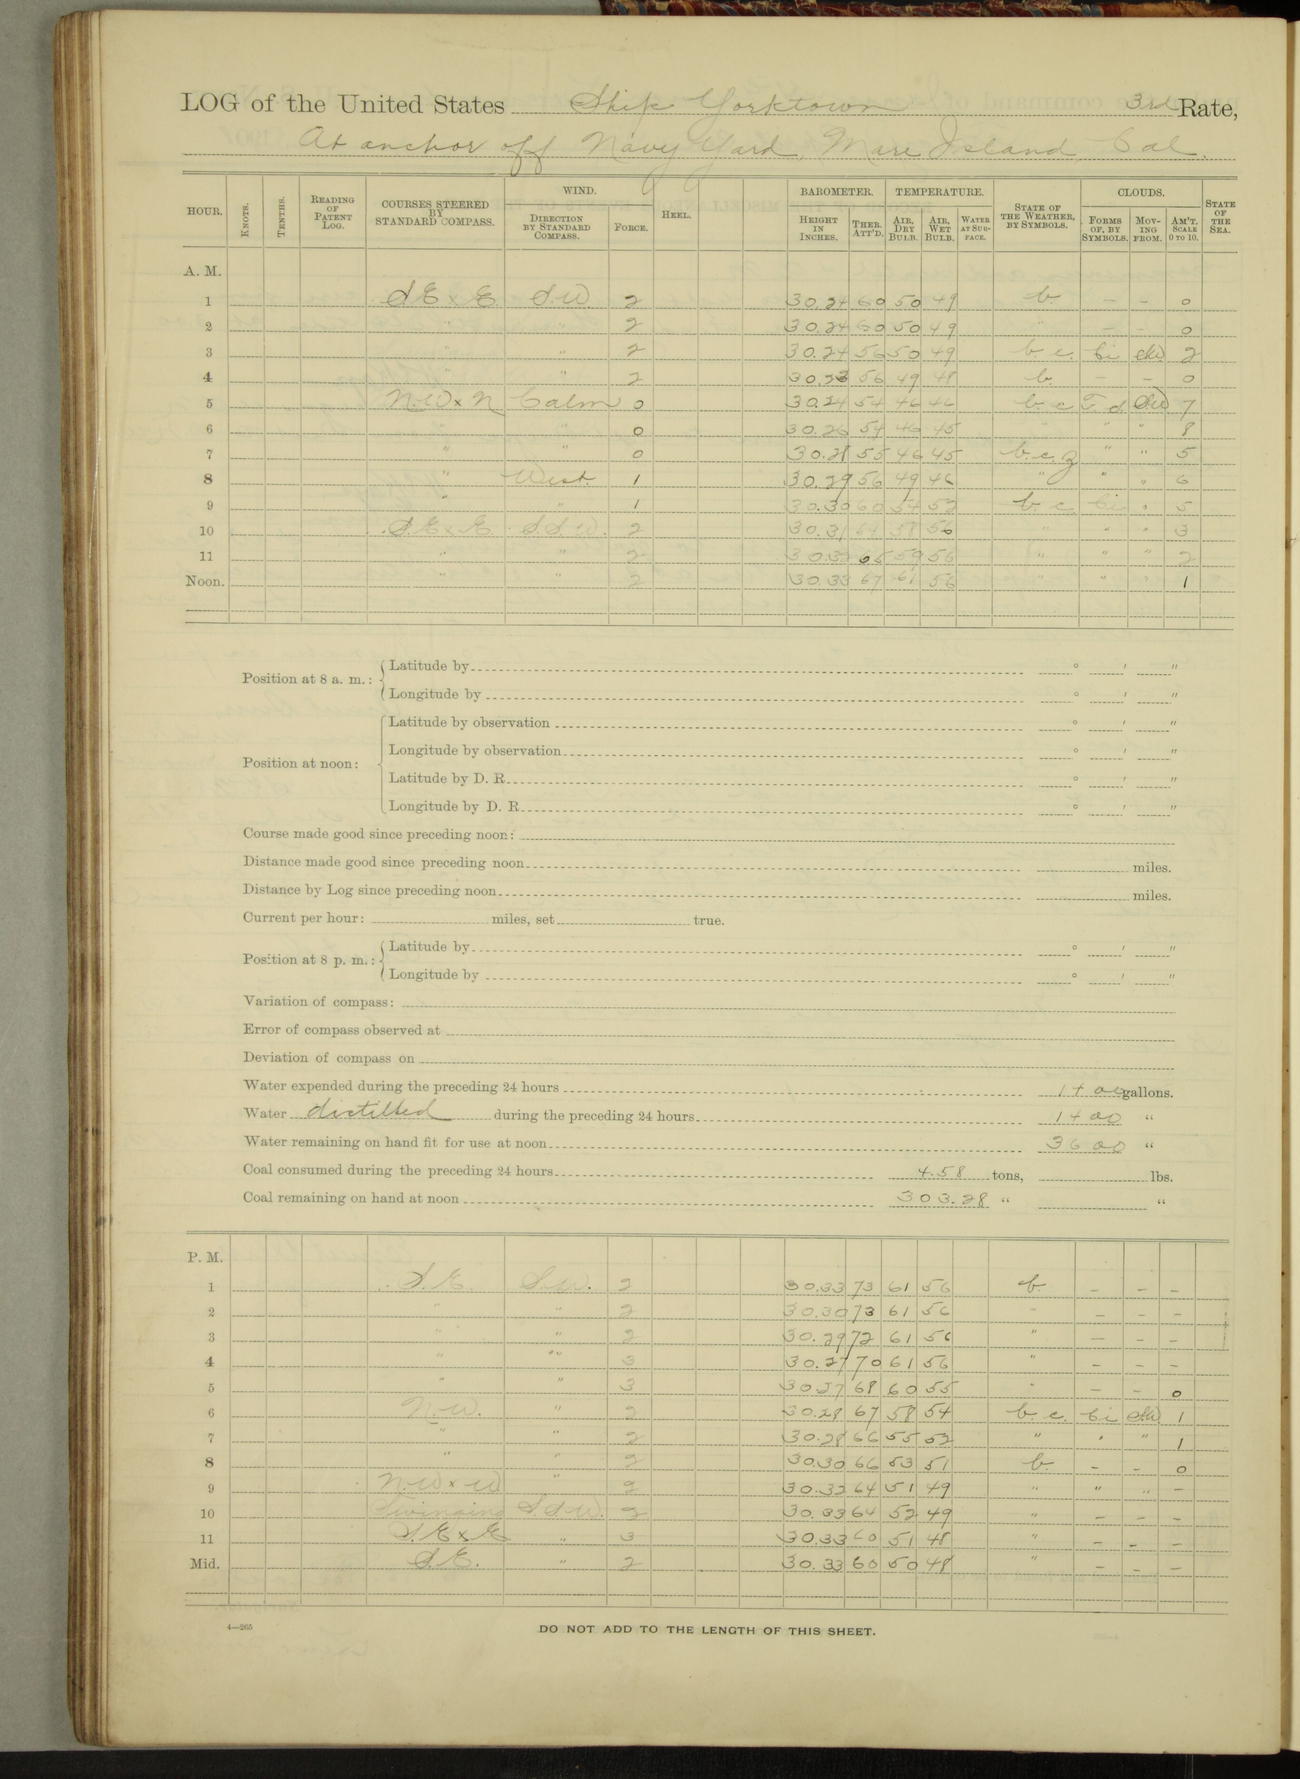 LOG of the United States Ship Yorktown 3rd Rate,
At anchor off Navy Yard, Mare Island, Cal.
HOUR. KNOTS. TENTHS. READING OF PATENT LOG. COURSES STEERED BY STANDARD COMPASS. WIND. DIRECTION BY STANDARD COMPASS. FORCE. HEEL. BAROMETER. HEIGHT IN INCHES. THER. ATT'D. TEMPERATURE. AIR, DRY BULB. AIR, WET BULB. WATER AT SURFACE. STATE OF THE WEATHER, BY SYMBOLS. CLOUDS. FORMS OF, BY SYMBOLS. MOVING FROM. AM'T. SCALE 0 TO 10. STATE OF THE SEA.
A. M.
1 SE x E SW. 2 30.24 60 50 49 b. – – 0
2 " " 2 30.24 60 50 49 " – – 0
3 " " 2 30.24 56 50 49 b. c. Ci 2
4 " " 2 30.23 56 49 48 b. – – 0
5 NW x N Calm 0 30.24 54 46 46 b. c 7
6 " " 0 30.26 54 46 45 " " " 8
7 " " 0 30.28 55 46 45 b. c. z " " 5
8 " West. 1 30.29 56 49 46 " " " 6
9 " " 1 30.30 60 54 52 b c Ci " 5
10 SE x E SSW. 2 30.31 64 58 56 " " " 3
11 " " 2 30.32 65 59 56 " " " 2
Noon. " " 2 30.33 67 61 56 " " " 1
Position at 8 a. m.: Latitude by ° ' "
Longitude by ° ' "
Position at noon: Latitude by observation ° ' "
Longitude by observation ° ' "
Latitude by D. R. ° ' "
Longitude by D. R. ° ' "
Course made good since preceding noon:
Distance made good since preceding noon miles.
Distance by Log since preceding noon miles.
Current per hour: miles, set true.
Position at 8 p. m.: Latitude by ° ' "
Longitude by ° ' "
Variation of compass:
Error of compass observed at
Deviation of compass on
Water expended during the preceding 24 hours 1400 gallons.
Water distilled during the preceding 24 hours 1400 "
Water remaining on hand fit for use at noon 3600 "
Coal consumed during the preceding 24 hours 4.58 tons, lbs.
Coal remaining on hand at noon 303.28 " "
P. M.
1 S.E. S.W. 2 30.33 73 61 56 b. – – –
2 " " 2 30.30 73 61 56 " – – –
3 " " 2 30.29 72 61 56 " – – –
4 " " 3 30.27 70 61 56 " – – –
5 " " 3 30.27 68 60 55 " – – 0
6 N.W. " 2 30.28 67 58 54 b. c. Ci 1
7 " " 2 30.28 66 55 52 " " " 1
8 " " 2 30.30 66 53 51 b. – – 0
9 NW x W " 2 30.32 64 51 49 " " " –
10 Swinging SSW. 2 30.33 64 52 49 " – – –
11 S.E x E " 3 30.33 60 51 48 " – – –
Mid. S.E. " 2 30.33 60 50 48 " – – –
4—265
DO NOT ADD TO THE LENGTH OF THIS SHEET.